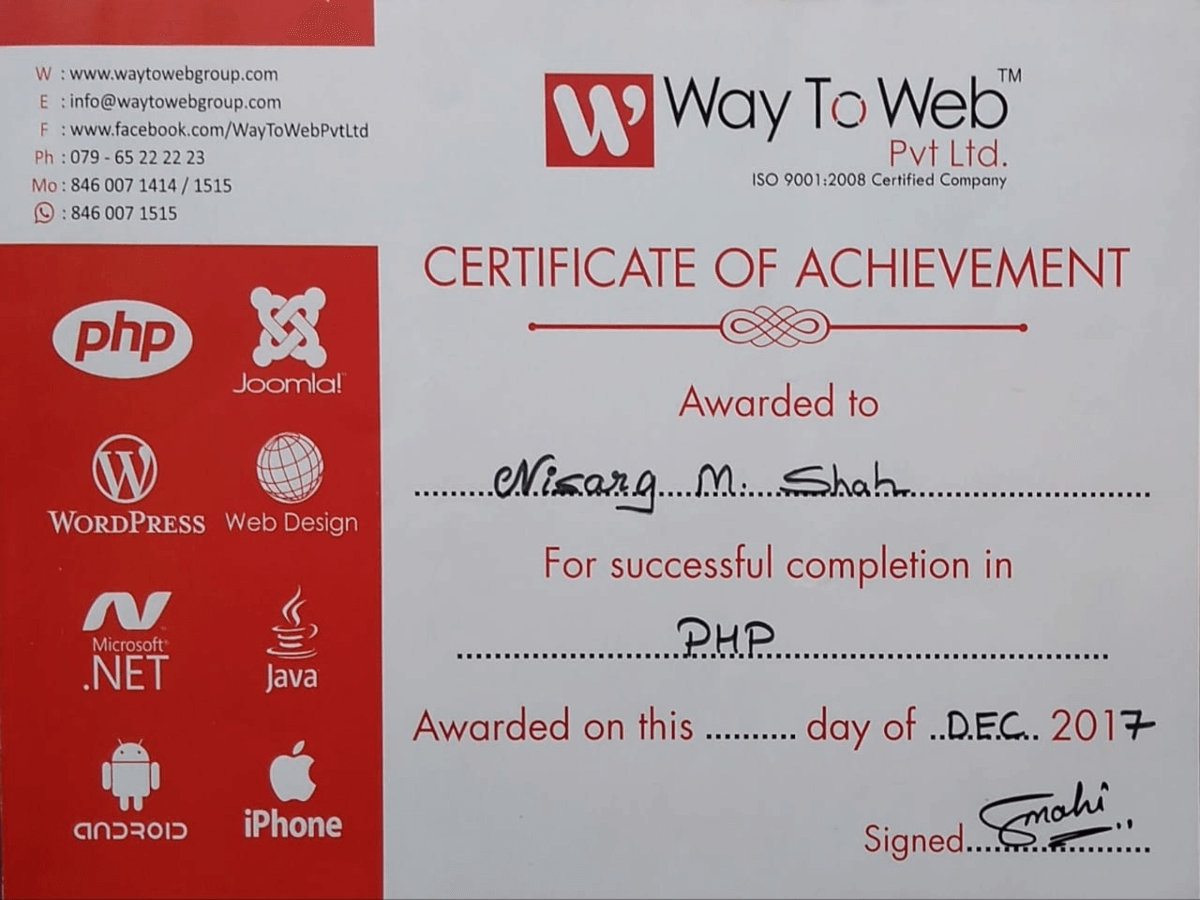 W : www.waytowebgroup.com
E : info@waytowebgroup.com
F : www.facebook.com/WayToWebPvtLtd
Ph : 079 - 65 22 22 23
Mo : 846 007 1414 / 1515
: 846 007 1515
php
Joomla!
WORDPRESS
Web Design
Microsoft®
.NET
Java
ANDROID
iPhone
W Way To Web™
Pvt Ltd.
ISO 9001:2008 Certified Company
CERTIFICATE OF ACHIEVEMENT
Awarded to
Nisarg M. Shah
For successful completion in
PHP
Awarded on this .......... day of ..DEC.. 2017
Signed